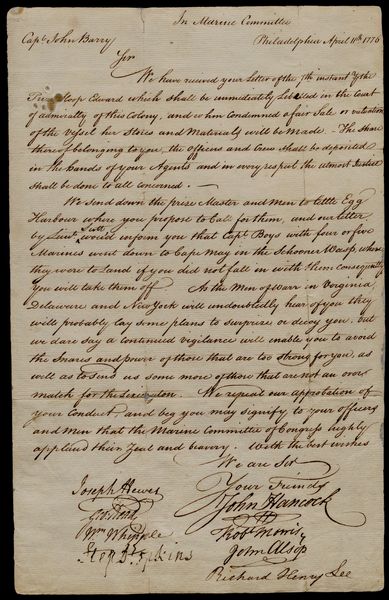 In Marine Committee
Capt John Barry Philadelphia April 11th 1776
Sir
We have received your Letter of the 7th instant & the
Prize Sloop Edward which shall be immediately Libelled in the Court
of admiralty of this Colony, and when Condemned a fair Sale or valuation
of the vessel her Stores and Materials will be Made - The Share
thereof belonging to you, the officers and Crew shall be deposited
in the hands of your Agents and in every respect the utmost Justice
Shall be done to all concerned. —
We Send down the prize Master and Men to Little Egg
Harbour where you propose to Call for them, and our Letter
by Lieut Scott would inform you that Capt Boys with four or five
Marines went down to Cape May in the Schooner Wasp, where
they were to Land if you did not fall in with them Consequently
you will take them off As the Men of Warr in Virginia
Delaware and New York will undoubtedly hear of you they
will probably lay some plans to surprize or decoy you. but
we dare say a Continued vigilance will enable you to avoid
the Snares and power of those that are too Strong for you, as
well as to Send us some more of those that are not an over
match for the Lexington. We repeat our approbation of
your Conduct, and beg you may Signify to your officers
and Men that the Marine Committee of Congress highly
applaud their Zeal and bravery. With the best wishes
We are Sir
Your Friends
Joseph Hewes John Hancock
Wm Whipple Robt Morris
Step Hopkins John Alsop
Richard Henry Lee